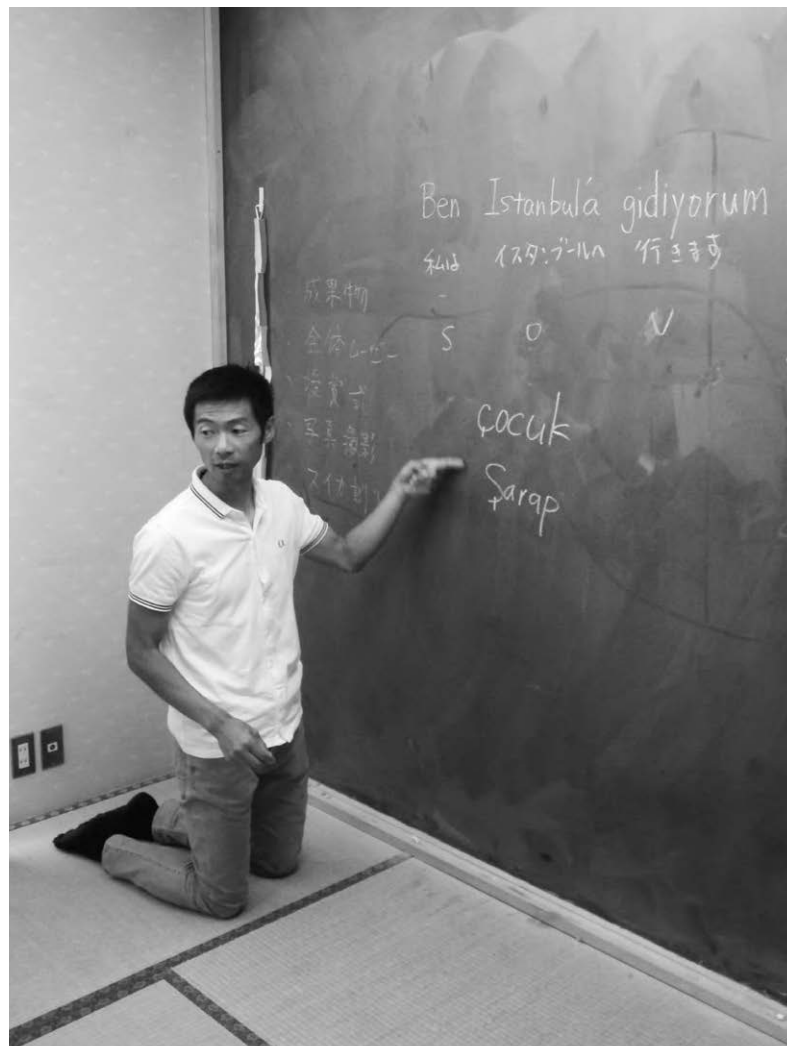 Ben Istanbulá gidiyorum
私は イスタンブールへ 行きます
S O V
çocuk
Şarap
成果物
・全体ムービー
・授賞式
・写真撮影
・スイカ割り